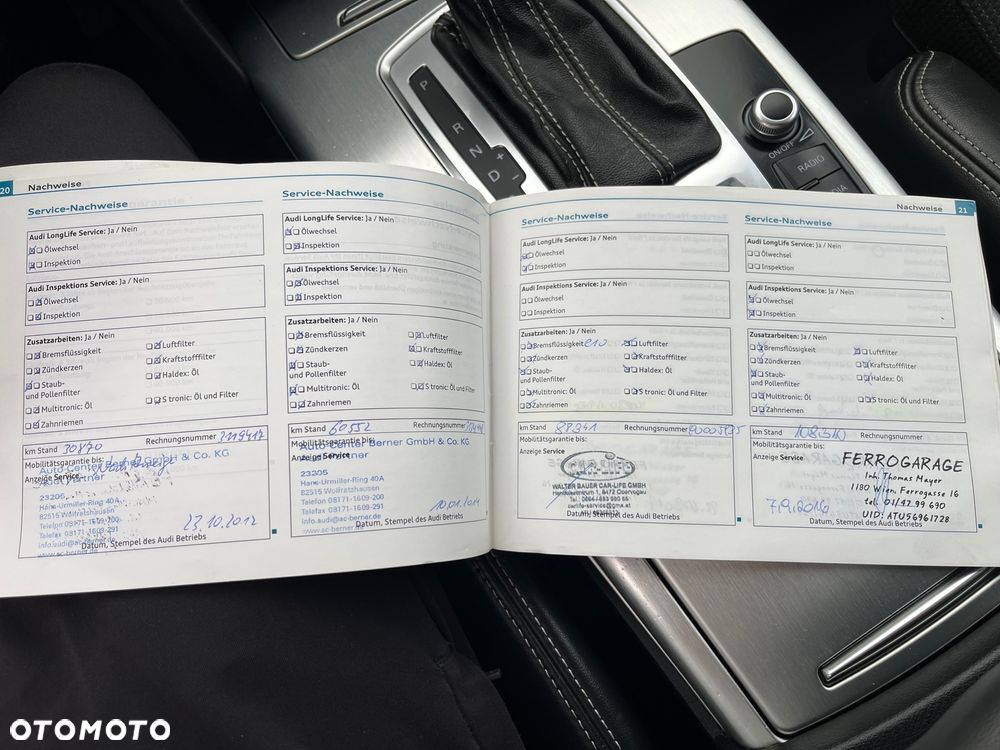 P
R
N
D
+
-
ON/OFF
RADIO
20 Nachweise
Service-Nachweise
Audi LongLife Service: Ja / Nein
Ölwechsel
Inspektion
Audi Inspektions Service: Ja / Nein
Ölwechsel
Inspektion
Zusatzarbeiten: Ja / Nein
Bremsflüssigkeit
Luftfilter
Zündkerzen
Kraftstofffilter
Staub-
und Pollenfilter
Haldex: Öl
Multitronic: Öl
S tronic: Öl und Filter
Zahnriemen
km Stand 30870 Rechnungsnummer
Mobilitätsgarantie bis:
Anzeige Service
Auto-Center Berner GmbH & Co. KG
Audi Partner
Hans-Urmiller-Ring 40A
82515 Wolfratshausen
Telefon 08171-1609-200
info.audi@ac-berner.de
www.ac-berner.de
23.10.2012
Datum, Stempel des Audi Betriebs
Service-Nachweise
Audi LongLife Service: Ja / Nein
Ölwechsel
Inspektion
Audi Inspektions Service: Ja / Nein
Ölwechsel
Inspektion
Zusatzarbeiten: Ja / Nein
Bremsflüssigkeit
Luftfilter
Zündkerzen
Kraftstofffilter
Staub-
und Pollenfilter
Haldex: Öl
Multitronic: Öl
S tronic: Öl und Filter
Zahnriemen
km Stand 60552 Rechnungsnummer
Mobilitätsgarantie bis:
Anzeige Service
Auto-Center Berner GmbH & Co. KG
Audi Partner
23305
Hans-Urmiller-Ring 40A
82515 Wolfratshausen
Telefon 08171-1609-200
Telefax 08171-1609-291
info.audi@ac-berner.de
www.ac-berner.de
Datum, Stempel des Audi Betriebs
Nachweise 21
Service-Nachweise
Audi LongLife Service: Ja / Nein
Ölwechsel
Inspektion
Audi Inspektions Service: Ja / Nein
Ölwechsel
Inspektion
Zusatzarbeiten: Ja / Nein
Bremsflüssigkeit
Luftfilter
Zündkerzen
Kraftstofffilter
Staub-
und Pollenfilter
Haldex: Öl
Multitronic: Öl
S tronic: Öl und Filter
Zahnriemen
km Stand 88941 Rechnungsnummer
Mobilitätsgarantie bis:
Anzeige Service
WALTER BAUER CAR-LIFE GMBH
carlife-service@gmx.at
Datum, Stempel des Audi Betriebs
Service-Nachweise
Audi LongLife Service: Ja / Nein
Ölwechsel
Inspektion
Audi Inspektions Service: Ja / Nein
Ölwechsel
Inspektion
Zusatzarbeiten: Ja / Nein
Bremsflüssigkeit
Luftfilter
Zündkerzen
Kraftstofffilter
Staub-
und Pollenfilter
Haldex: Öl
Multitronic: Öl
S tronic: Öl und Filter
Zahnriemen
km Stand Rechnungsnummer
Mobilitätsgarantie bis:
Anzeige Service
FERROGARAGE
Inh. Thomas Mayer
1180 Wien, Ferrogasse 16
tel. 01/47 99 690
UID: ATU56961728
7.9.2016
Datum, Stempel des Audi Betriebs
OTOMOTO